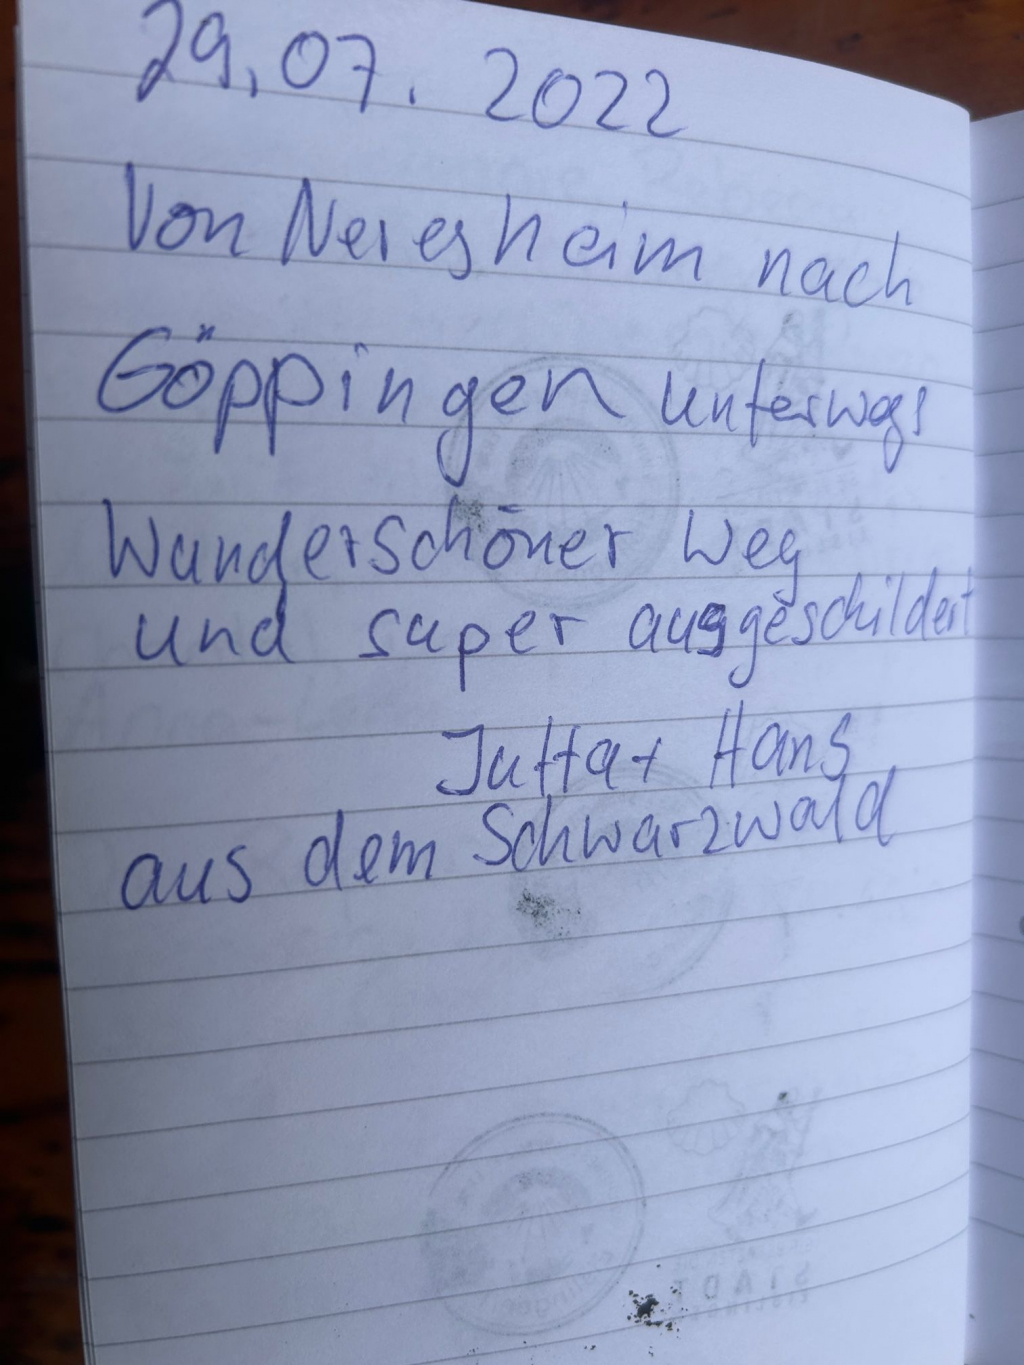 29.07.2022
Von Neresheim nach
Göppingen unterwegs
Wunderschöner Weg
und super ausgeschildert
Jutta + Hans
aus dem Schwarzwald
STADT